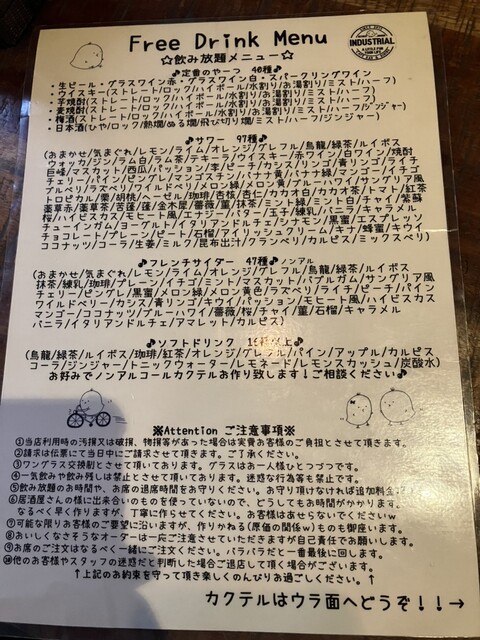 Free Drink Menu
INDUSTRIAL
☆飲み放題メニュー☆
♪定番のやーつ 40種♪
・生ビール・グラスワイン赤・グラスワイン白・スパークリングワイン
・ウイスキー(ストレート/ロック/ハイボール/水割り/お湯割り/ミスト/ハーフ)
・芋焼酎(ストレート/ロック/ハイボール/水割り/お湯割り/ミスト/ハーフ)
・麦焼酎(ストレート/ロック/ハイボール/水割り/お湯割り/ミスト/ハーフ/ジンジャー)
・梅酒(ストレート/ロック/ハイボール/水割り/お湯割り/ミスト/ハーフ)
・日本酒(ひや/ロック/熱燗/ぬる燗/飛び切り燗/ミスト/ハーフ/ジンジャー)
♪サワー 97種♪
(おまかせ/気まぐれ/レモン/ライム/オレンジ/グレフル/烏龍/緑茶/ルイボス
ウォッカ/ジン/ラム白/ラム茶/テキーラ/ウイスキー/赤ワイン/白ワイン/焼酎
巨峰/マスカット/西瓜/パッション/李/ピーチ/カシス/リンゴ/青リンゴ/ライチ
チェリー/パイン/ピングレ/マンゴスチン/バナナ黄/バナナ緑/マンゴー/イチゴ
ブルベリ/ラズベリ/ワイルドベリ/メロン緑/メロン黄/ブルーハワイ/サングリア風
トロピカル/栗/胡桃/ヘーゼル/珈琲/杏仁/カカオ白/カカオ茶/トマト/紅茶
薬草赤/薬草茶/苦蓬/蓬/金木犀/薔薇/菫/抹茶/ミント緑/ミント白/チャイ/紫蘇
桜/ハイビスカス/モヒート風/エナジー/バター/玉子/練乳/バニラ/キャラメル
チューインガム/ヨーグルト/イタリアンドルチェ/シナモン/黒蜜/エスプレッソ
チョコレート/プレーン/ビート/石榴/アイリッシュクリーム/キナ/蜂蜜/キウイ
ココナッツ/コーラ/生姜/ミルク/昆布出汁/クランベリ/カルピス/ミックスベリ)
♪フレンチサイダー 47種♪ノンアル
(おまかせ/気まぐれ/レモン/ライム/オレンジ/グレフル/烏龍/緑茶/ルイボス
抹茶/練乳/珈琲/プレーン/チイゴ/ミント/マスカット/バブルガム/サングリア風
チェリー/ピングレ/黒蜜/メロン緑/メロン黄色/ラズベリ/ライチ/ピーチ/パイン
ワイルドベリー/カシス/青リンゴ/キウイ/パッション/モヒート風/ハイビスカス
マンゴー/ココナッツ/ブルーハワイ/薔薇/桜/チャイ/菫/石榴/キャラメル
バニラ/イタリアンドルチェ/アマレット/カルピス)
♪ソフトドリンク 以上♪
(烏龍/緑茶/ルイボス/珈琲/紅茶/オレンジ/グレフル/パイン/アップル/カルピス
コーラ/ジンジャー/トニックウォーター/レモネード/レモンスカッシュ/炭酸水)
お好みでノンアルコールカクテルお作り致します!ご相談ください♪
※Attention ご注意事項※
①当店利用時の汚損又は破損、物損等があった場合は実費お客様のご負担とさせて頂きます。
②請求は伝票にて当日中にご請求させて頂きます。ご了承ください。
③ワングラス交換制とさせて頂いております。グラスはお一人様ひとつづつです。
④一気飲みや飲み残しは禁止とさせて頂いてます。迷惑な行為等も禁止です。
⑤飲み放題のお時間や、お席の退席時間をお守りください。お守り頂けなければ追加料金
⑥居酒屋さんの様に出来合いのものを使っていないので、どうしてもお時間がかかります。
なるべく早く作りますが、丁寧に作らせてください。お客様はあせらないでくださいw
⑦可能な限りお客様のご要望に沿いますが、作りかねる(原価の関係w)ものも御座います。
⑧おいしくなさそうなオーダーは一応ご注意させていただきますが自己責任でお願いします。
⑨お席のご注文はなるべく一緒にご注文ください。バラバラだと一番最後に回します。
⑩他のお客様やスタッフの迷惑だと判断した場合ご退店して頂く場合がございます。
↑上記のお約束を守って頂き楽しくのんびりお過ごしください。↑
カクテルはウラ面へどうぞ!!→